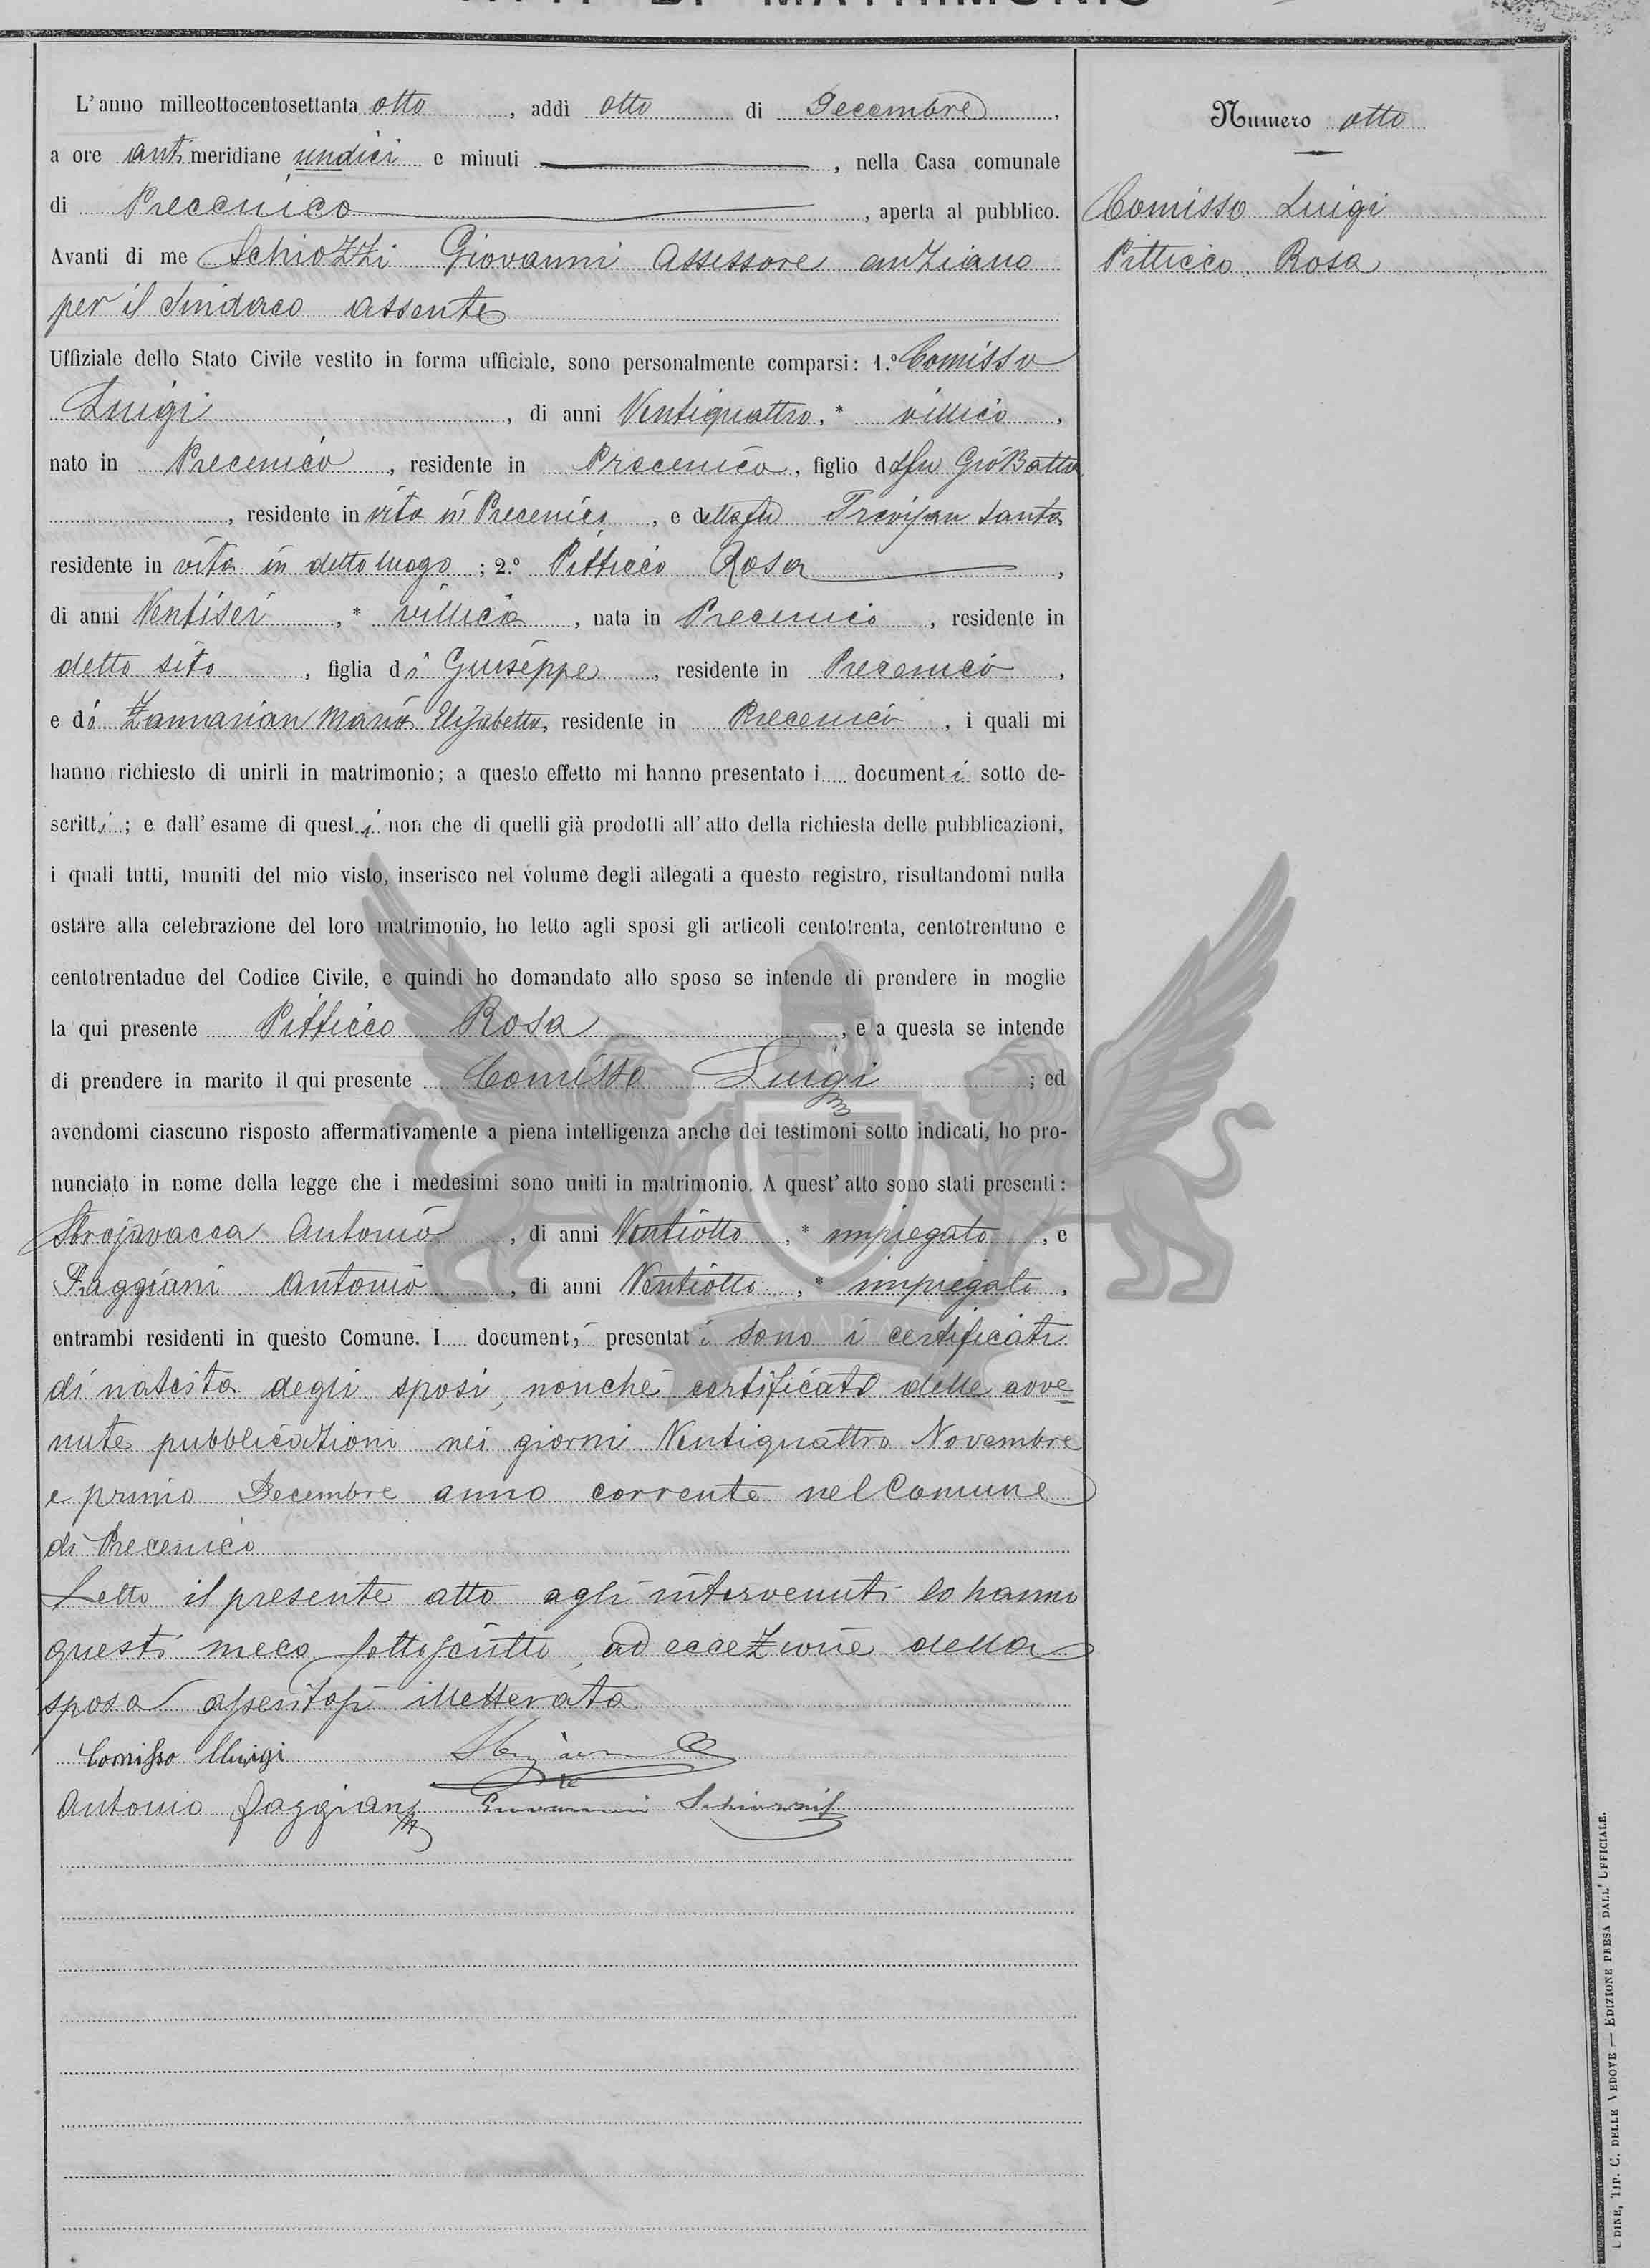 ATTI DI MATRIMONIO
L'anno milleottocentosettanta otto, addì otto di Decembre,
a ore anti meridiane undici e minuti, nella Casa comunale
di Precenico, aperta al pubblico.
Avanti di me Schiozzi Giovanni Assessore anziano
per il Sindaco assente
Uffiziale dello Stato Civile vestito in forma ufficiale, sono personalmente comparsi: 1.° Comisso
Luigi, di anni Ventiquattro,* villico,
nato in Precenico, residente in Precenico, figlio del fu Gio Batta
, residente in vita in Precenico, e della fu Trevisan Santa
residente in vita in detto luogo; 2.° Pitticco Rosa,
di anni Ventisei,* villica, nata in Precenico, residente in
detto sito, figlia di Giuseppe, residente in Precenico,
e di Zannarian Maria Elisabetta, residente in Precenico, i quali mi
hanno richiesto di unirli in matrimonio; a questo effetto mi hanno presentato i documenti sotto de-
scritti; e dall'esame di questi non che di quelli già prodotti all'atto della richiesta delle pubblicazioni,
i quali tutti, muniti del mio visto, inserisco nel volume degli allegati a questo registro, risultandomi nulla
ostare alla celebrazione del loro matrimonio, ho letto agli sposi gli articoli centotrenta, centotrentuno e
centotrentadue del Codice Civile, e quindi ho domandato allo sposo se intende di prendere in moglie
la qui presente Pitticco Rosa, e a questa se intende
di prendere in marito il qui presente Comisso Luigi; ed
avendomi ciascuno risposto affermativamente a piena intelligenza anche dei testimoni sotto indicati, ho pro-
nunciato in nome della legge che i medesimi sono uniti in matrimonio. A quest'atto sono stati presenti:
Strojavacca Antonio, di anni Ventiotto,* impiegato, e
Faggiani Antonio, di anni Ventiotto,* impiegato,
entrambi residenti in questo Comune. I documenti presentati sono i certificati
di nascita degli sposi, nonchè certificato delle avve=
nute pubblicazioni nei giorni Ventiquattro Novembre
e primo Decembre anno corrente nel Comune
di Precenico
Letto il presente atto agli intervenuti lo hanno
questi meco sottoscritto, ad eccezione della
sposa assentasi illetterata
Comisso Luigi
Antonio Faggiani Giovanni Schiozzi
Numero otto
Comisso Luigi
Pitticco Rosa
UDINE, TIP. C. DELLE VEDOVE — EDIZIONE PRESA DALL'UFFICIALE.